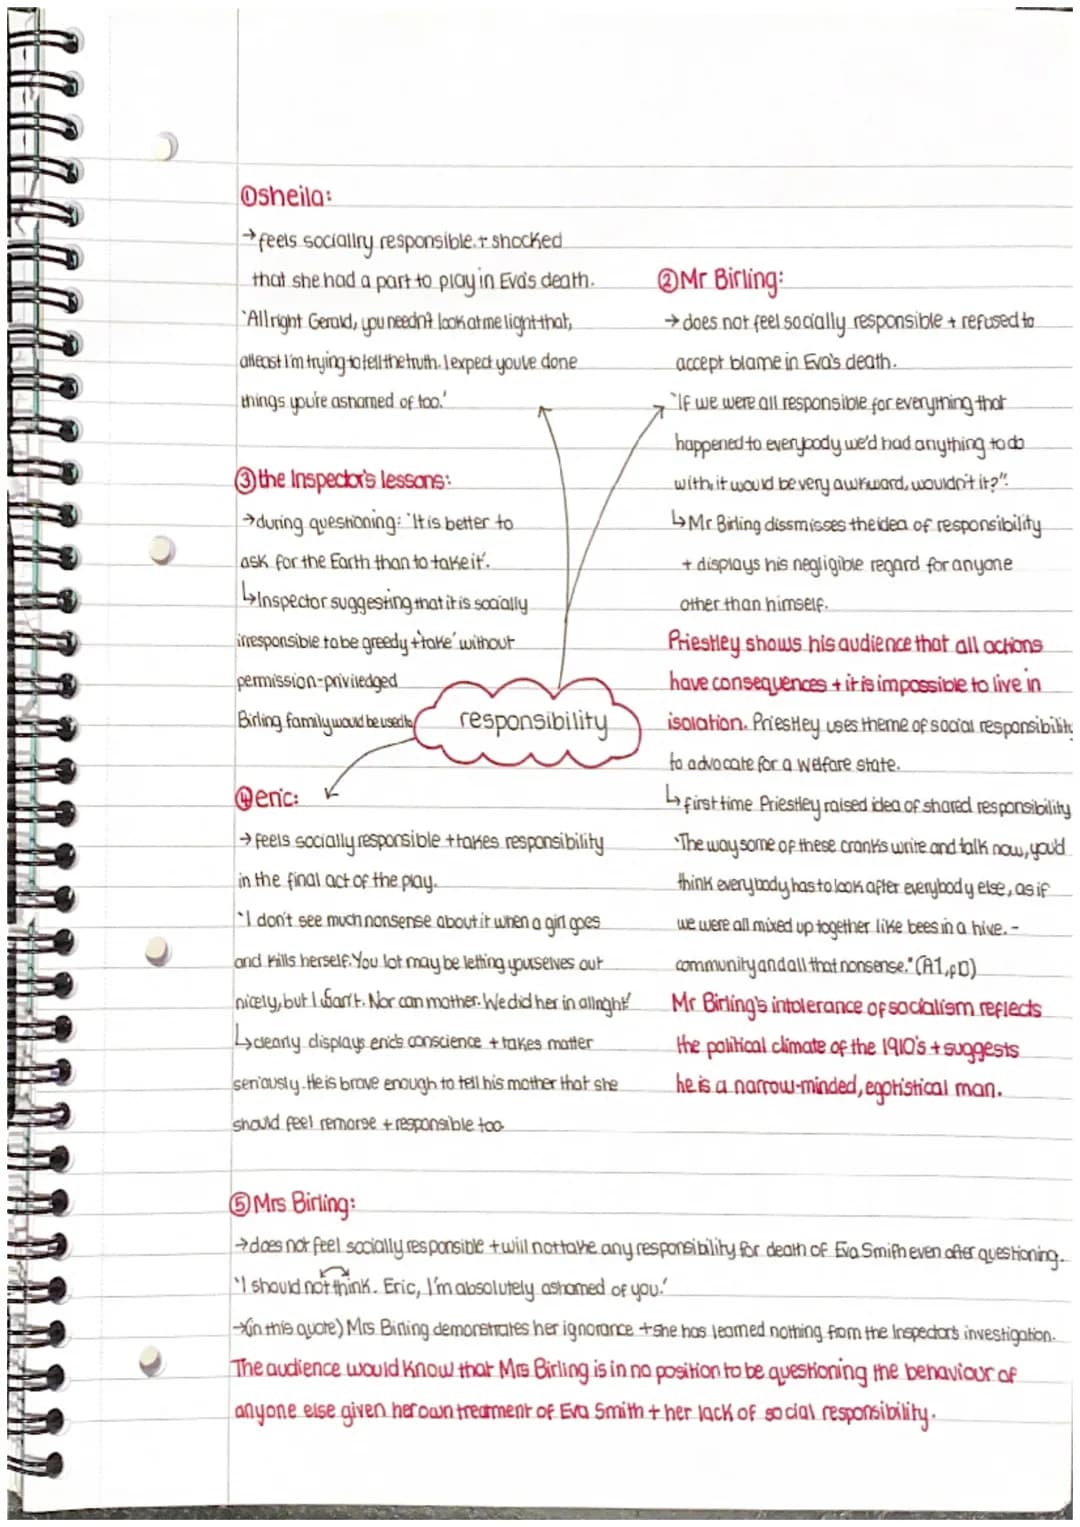 ①Sheila:
→feels sociallry responsible.+ shocked
that she had a part to play in Eva's death.
'Allright Gerald, you needn't look at me light-that,
atleast I'm trying to tell the truth. I expect youve done
things you're ashamed of too.'
③the Inspector's lessons:
→during questioning: 'It is better to
ask for the Earth than to take it'.
↳Inspector suggesting that it is socially
irresponsible to be greedy + 'take' without
permission-priviledged
Birling family would be used to
responsibility
④eric:
→feels socially responsible + takes responsibility
in the final act of the play.
"I don't see much nonsense about it when a girl goes
and kills herself. You lot may be letting yourselves out
nicely, but I can't. Nor can mother. We did her in allright'
↳clearly displays eric's conscience + takes matter
seriously. He is brave enough to tell his mother that she
should feel remorse + responsible too
②Mr Birling:
→does not feel socially responsible + refused to
accept blame in Eva's death.
"If we were all responsible for everything that
happened to everybody we'd had anything to do
with, it would be very awkward, wouldn't it?".
↳Mr Birling dissmisses the idea of responsibility
+ displays his negligible regard for anyone
other than himself.
Priestley shows his audience that all actions
have consequences + it is impossible to live in
isolation. Priestley uses theme of social responsibility
to advocate for a welfare state.
↳first time Priestley raised idea of shared responsibility
"The way some of these cranks write and talk now, you'd
think everybody has to look after everybody else, as if
we were all mixed up together like bees in a hive. -
community and all that nonsense." (A1,p10)
Mr Birling's intolerance of socialism reflects
the political climate of the 1910's + suggests
he is a narrow-minded, egotistical man.
⑤Mrs Birling:
→does not feel socially responsible + will not take any responsibility for death of Eva Smith even after questioning.
"I should not think. Eric, I'm absolutely ashamed of you.'
→(in this quote) Mrs Birling demonstrates her ignorance + she has learned nothing from the Inspector's investigation.
The audience would know that Mrs Birling is in no position to be questioning the behaviour of
anyone else given her own treatment of Eva Smith + her lack of social responsibility.